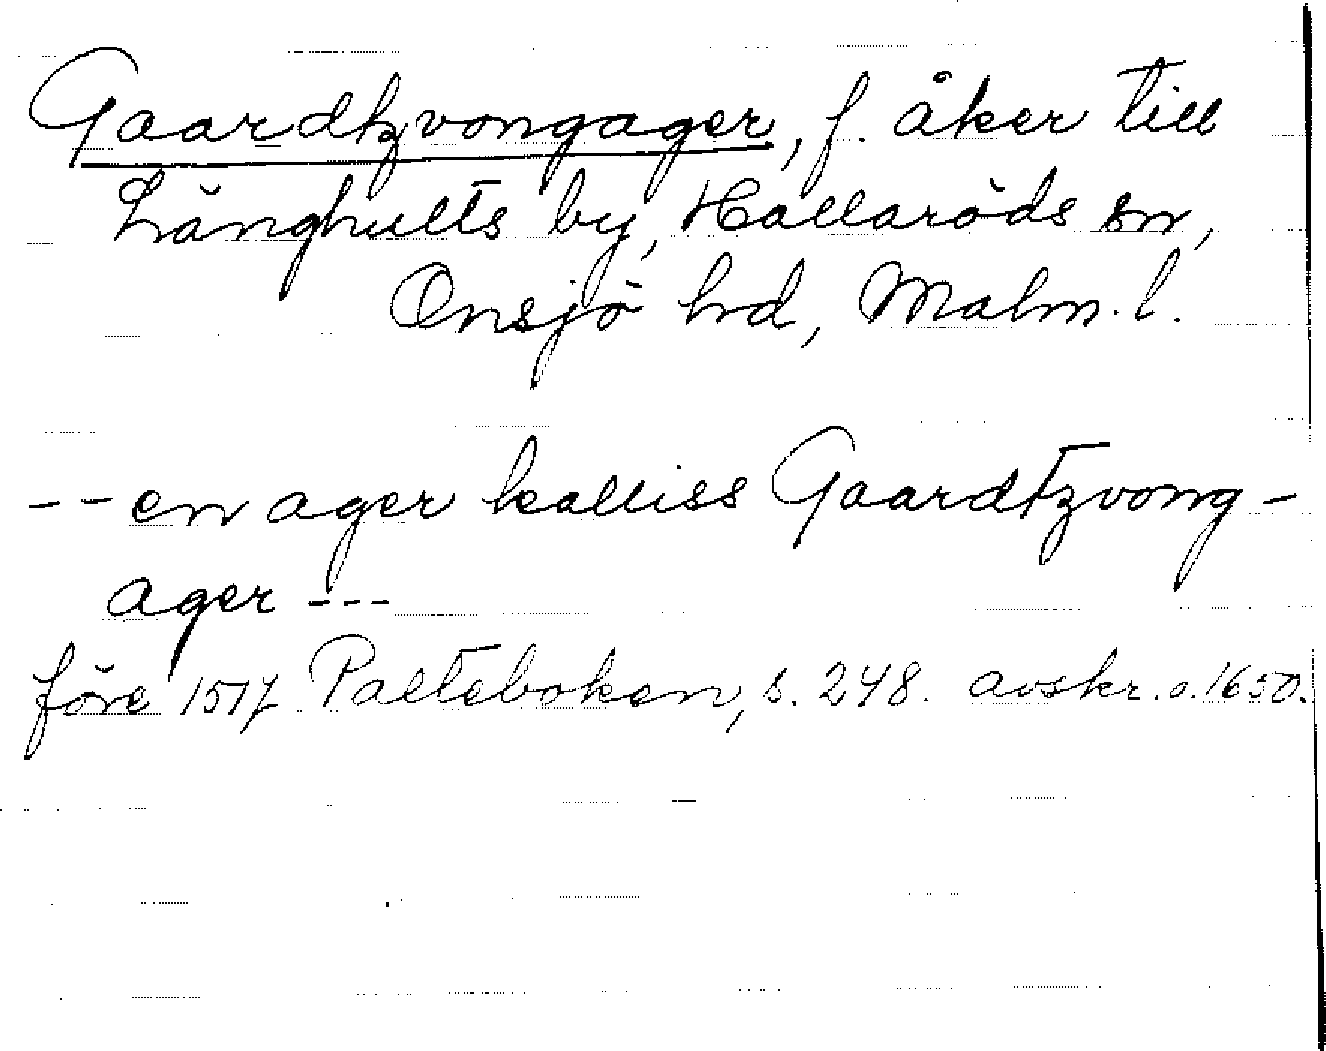 Gaardtzvongager, f. åker till
Långhults by, Hallaröds sn,
Onsjö hd, Malm. l.
-- en ager kalliss Gaardtzvong-
ager ---
före 1517 Palteboken, s. 248. avskr. o. 1650.